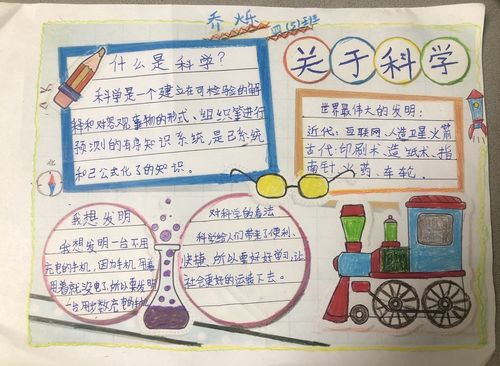 乔烁
四(5)班
关于科学
什么是科学?
科学是一个建立在可检验的解
释和对客观事物的形式、组织等进行
预测的有序知识系统,是已系统
和已公式化了的知识。
世界最伟大的发明:
近代:互联网、人造卫星火箭
古代:印刷术、造纸术、指
南针、火药、车轮。
我想发明
我想发明一台不用
充电的手机,因为手机用着
用着就没电了,所以要发明
一台用步数充电的手机
对科学的看法
科学给人们带来了便利、
快捷,所以要好好学习,让
社会更好的运转下去。
北